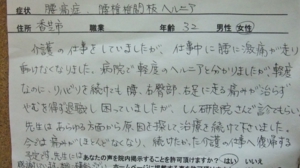 症状 腰痛症、腰椎椎間板ヘルニア
住所 香芝市 職業 年齢 32 男性 女性
介護の仕事をしていましたが、仕事中に腰に激痛が走り
動けなくなりました。病院で軽度のヘルニアと分かりましたが軽度
なのに、リハビリを続けても腰、右臀部、右足に走る痛みが治らず
やむを得ず退職し困っていましたが、しん研院さんで診てもらい
先生はあらゆる方面から原因を探して治療を続けて下さいました。
今では痛みがほとんどなくなり、続けたかった介護の仕事へ復帰する
先生は あなたの声を院内掲示することを許可頂けますか? はい いいえ